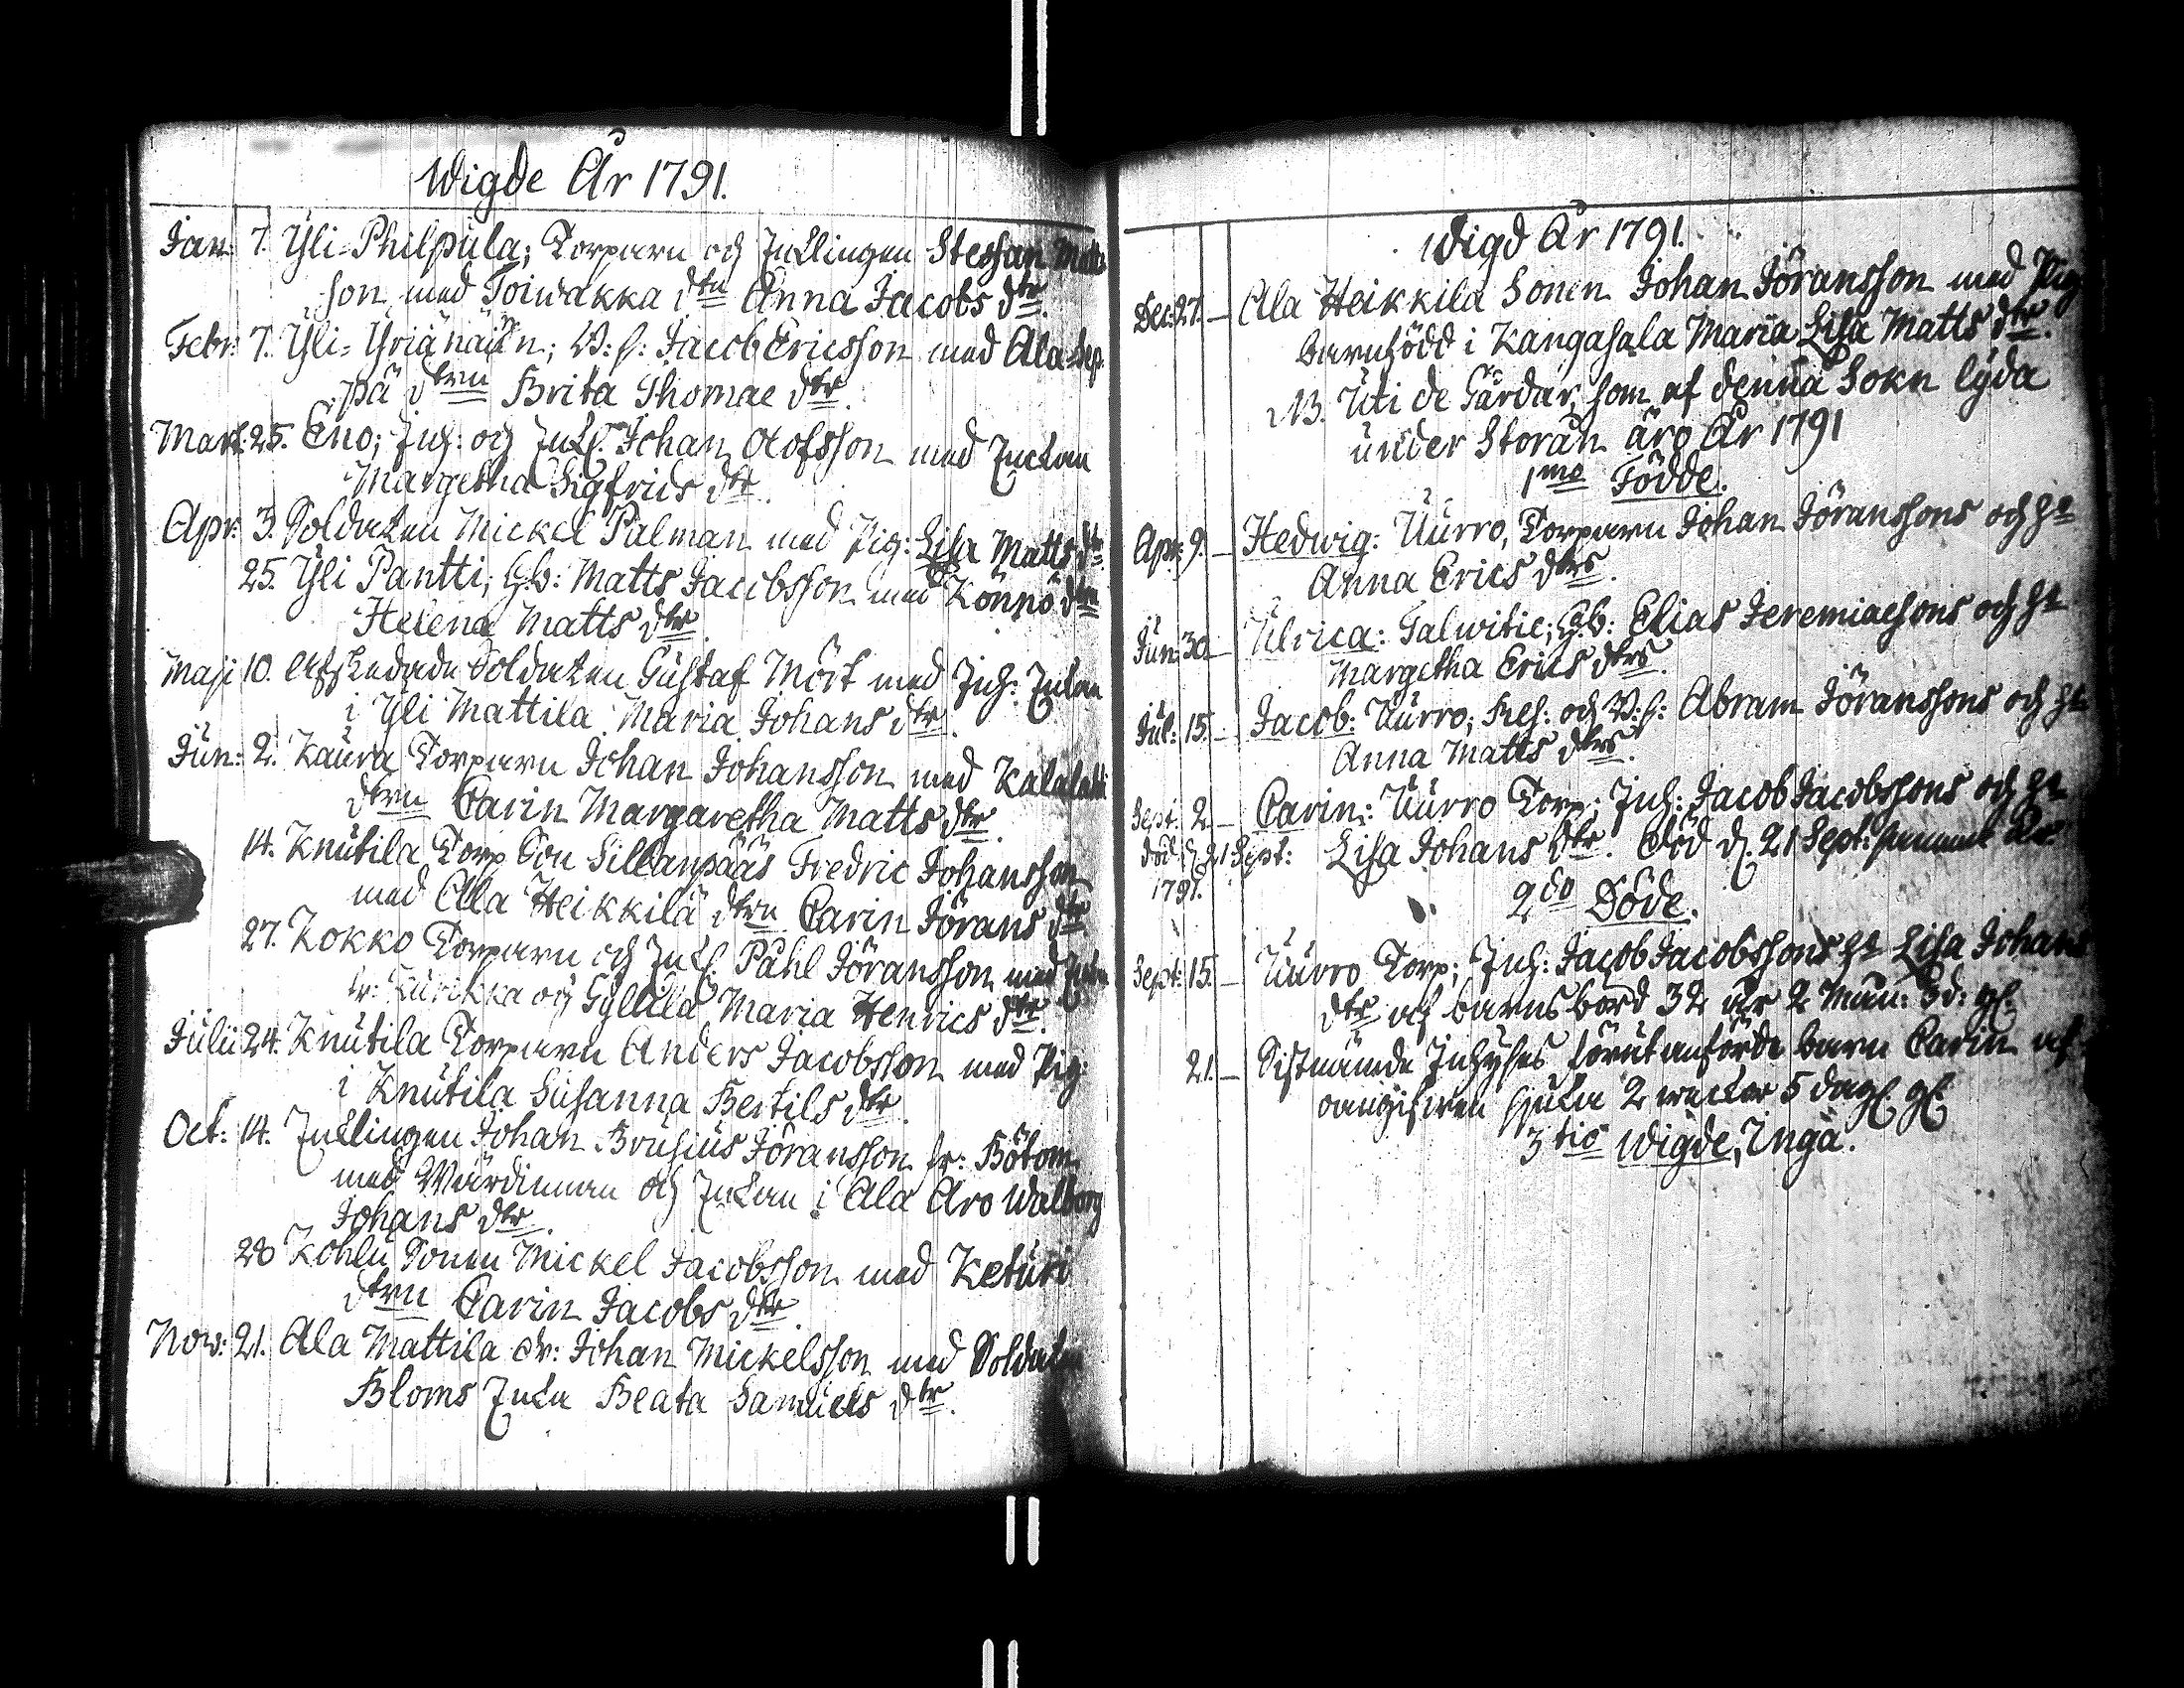 Wigde År 1791.
Jan: 7. Yli-Philpula; Torparn och Enklingen Stephan Matts
son med Toiwakka dtrn Anna Jacobs dtr.
Febr: 7. Yli-Yriänäin; Jacob Ericsson med Ala-Sep
pä dtrn Brita Thomae dtr.
Mart: 25. Eno; Inh: och Enkl: Johan Olofsson med Enckan
Margetha Sigfrids dtr.
Apr: 3. Soldaten Mickel Palman med Pig: Lisa Matts dtr
25. Yli Pantti; Gb: Matts Jacobsson med Könnö dtrn
Helena Matts dtr
Maji 10. Afskedade Soldaten Gustaf Mört med Inh: Enkan
i Yli Mattila Maria Johans dtr.
Jun: 2. Kaura Torparn Johan Johansson med Kalalatti
dtrn Carin Margaretha Matts dtr.
14. Knutila Torp Son Sillanpääs Fredric Johansson
med Ala Heikkilä dtrn Carin Jörans dtr
27. Kokko Torparn och Enkl: Påhl Jöransson med Enkan
fr: Kurikka och Gyllilä Maria Henrics dtr.
Julii 24. Knutila Torparn Anders Jacobsson med Pig:
i Knutila Susanna Bertils dtr.
Oct: 14. Enklingen Johan Brusius Jöransson fr: Bötom
med Enkan i Ala Aro Walborg
Johans dtr.
28 Kohlu Sonen Mickel Jacobsson med Keturi
dtrn Carin Jacobs dtr.
Now: 21. Ala Mattila dr: Johan Mickelsson med Soldaten
Bloms Enka Beata Samuels dtr.
Wigd År 1791.
Dec: 27. Ala Heikkilä Sonen Johan Jöransson med Pig
barnfödd i Kangasala Maria Lisa Matts dtr.
NB. Uti de Gårdar, som af denna Sokn lyda
under Storån äro År 1791
1mo Födde.
Apr: 9. Hedwig: Uurro, Torparn Johan Jöranssons och H:
Anna Erics dtrs.
Jun: 30 Ulrica: Talwitie; Gb: Elias Jeremiaesons och H:
Margetha Erics dtrs.
Jul: 15. Jacob: Uurro; Abram Jöranssons och H:
Anna Matts dtrs.
Sept: 2 Carin: Uurro Torp; Inh: Jacob Jacobssons och H:
död d. 21 Sept: Lisa Johans dtr. död d. 21 Sept: samma År
1791.
2do Döde.
Sept: 15. Uurro Torp; Inh: Jacob Jacobssons H: Lisa Johans
dtr af barnsbörd 32 år 2 Mån: 3 d: gl.
21. Sistnämde Inhyses förut anförde barn Carin af
oangifwen sjuka 2 weckor 5 dag: gl.
3tio Wigde, Inga.